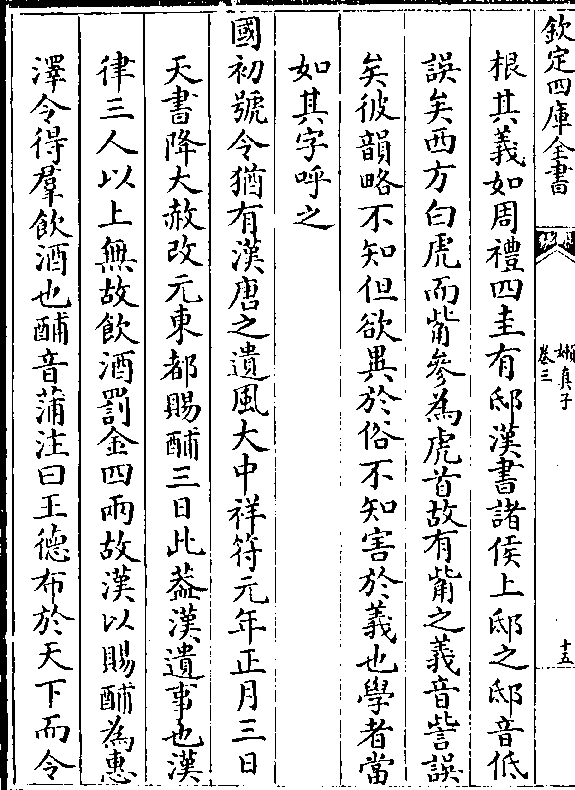 欽定四庫全書
嬾真子
卷三
十五
根其義如周禮四圭有邸漢書諸侯上邸之邸音低
誤矣西方白虎而觜參為虎首故有觜之義音訾誤
矣彼韻略不知但欲異於俗不知害於義也學者當
如其字呼之
國初號令猶有漢唐之遺風大中祥符元年正月三日
天書降大赦改元東都賜酺三日此葢漢遺事也漢
律三人以上無故飲酒罰金四兩故漢以賜酺為惠
澤令得羣飲酒也酺音蒲注曰王德布於天下而令